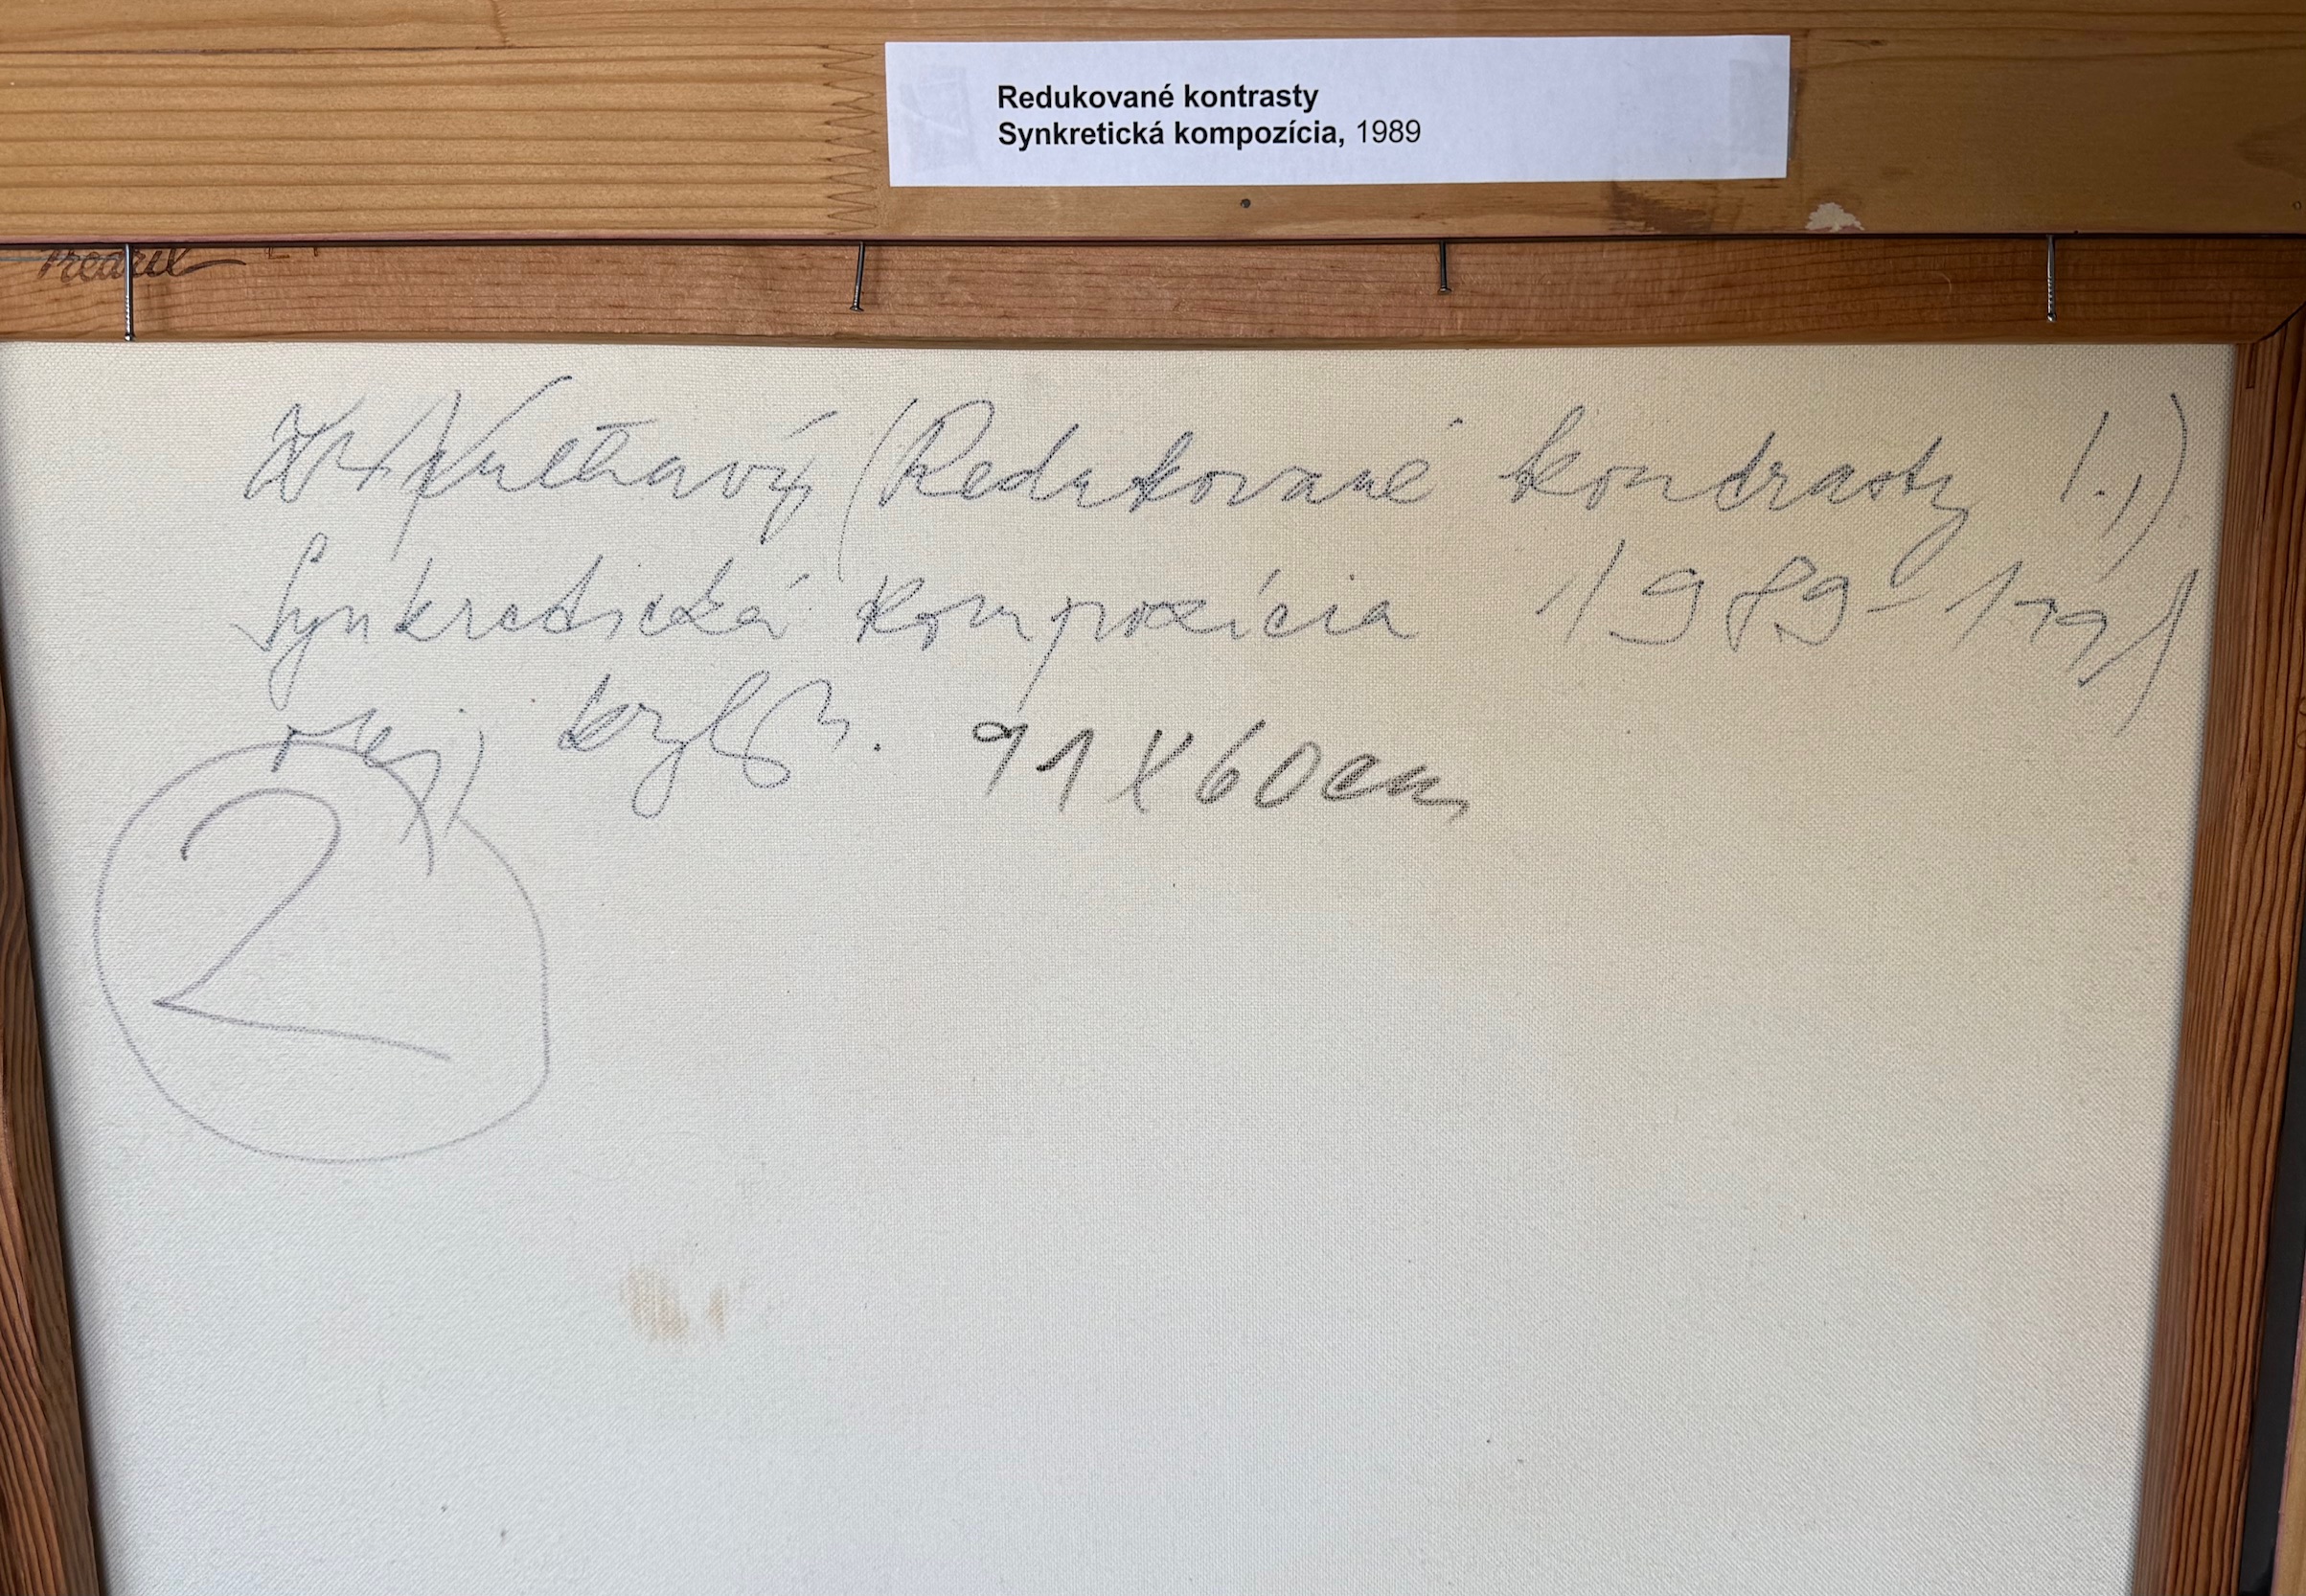 Redukované kontrasty
Synkretická kompozícia, 1989
(Redukované kontrasty I.,)
Synkretická kompozícia /1989-1991/
91x60cm
2